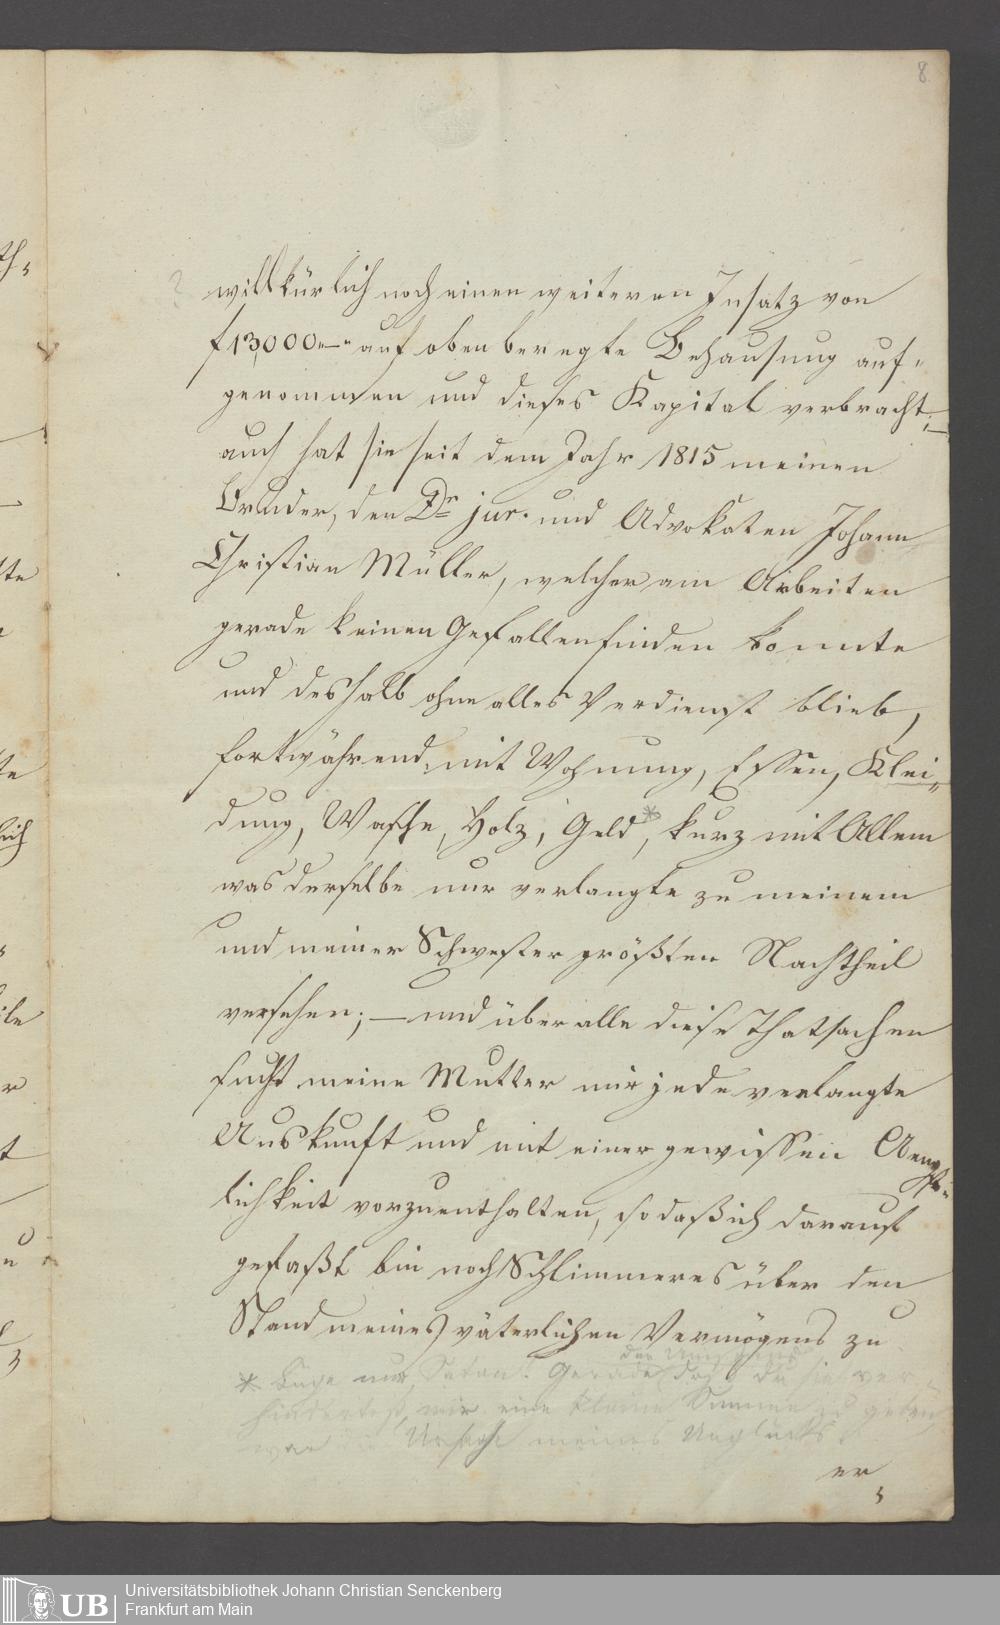 8
?
willkürlich noch einen weiteren Insatz von
f 13,000„—„ auf oben beregte Behausung auf-
genommen und dieses Kapital verbracht;—
auch hat sie seit dem Jahr 1815 meinen
Bruder, den Dr. jur. und Advokaten Johann
Christian Müller, welcher am Arbeiten
gerade keinen Gefallen finden konnte
und deshalb ohne alles Verdienst blieb,
fortwährend mit Wohnung, Essen, Klei-
dung, Wasche, Holz, Geld *, kurz mit Allem
was derselbe nur verlangte zu meinem
und meiner Schwester größten Nachtheil
versehen; — und über alle diese Thatsachen
sucht meine Mutter mir jede verlangte
Auskunft und mit einer gewissen Aengst-
lichkeit vorzuenthalten, so daß ich darauf
gefaßt bin noch Schlimmeres über den
Stand meines väterlichen Vermögens zu
der Umstand
* Lüge nur, Satan! Gerade daß du sie ver-
hindertest, mir eine kleine Summe zu geben,
war die Ursache meines Unglücks.
er
Universitätsbibliothek Johann Christian Senckenberg
Frankfurt am Main
UB